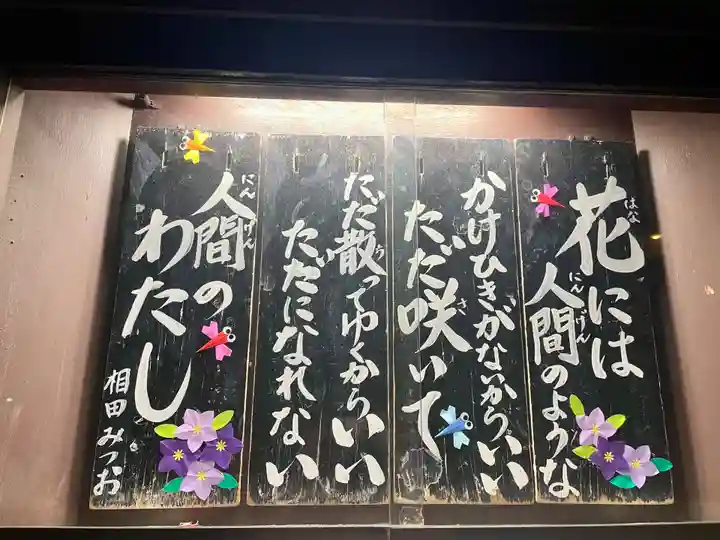 花には
人間のような
かけひきがないからいい
ただ咲いて
ただ散ってゆくからいい
ただになれない
人間の
わたし
相田みつお